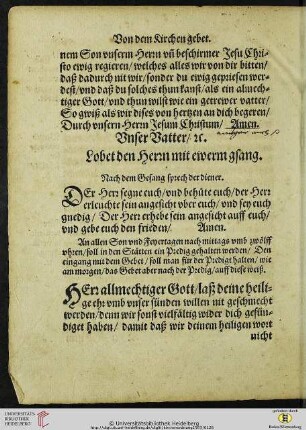 Von dem Kirchen gebet.
nem Son vnserm Herrn vñ beschirmer Jesu Chri-
sto ewig regieren/ welches alles wir von dir bitten/
daß dadurch nit wir/ sonder du ewig gepriesen wer-
dest/ vnd daß du solches thun kanst/ als ein almech-
tiger Gott/ vnd thun wilst wie ein getrewer vatter/
So gwiß als wir dises von hertzen an dich begeren/
Durch vnsern Herrn Jesum Christum/ Amen.
Vnser Vatter/ ꝛc.
Lobet den Herrn mit ewerm gsang.
Nach dem Gesang sprech der diener.
DEr Herr segne euch/ vnd behüte euch/ der Herr
erleuchte sein angesicht vber euch/ vnd sey euch
gnedig/ Der Herr erhebe sein angesicht auff euch/
vnd gebe euch den frieden/ Amen.
An allen Son vnd Feyertagen nach mittags vmb zwölff
vhren/ soll in den Stätten ein Predig gehalten werden/ Den
eingang mit dem Gebet/ soll man für der Predigt halten/ wie
am morgen/ das Gebet aber nach der Predig/ auff diese weiß.
HErr allmechtiger Gott/ laß deine heili-
ge ehr vmb vnser sünden willen nit geschmecht
werden/ denn wir sonst vielfältig wider dich gesün-
diget haben/ damit daß wir deinem heiligen wort
nicht
UNIVERSITÄTS-
BIBLIOTHEK
HEIDELBERG
© Universitätsbibliothek Heidelberg
gefördert durch